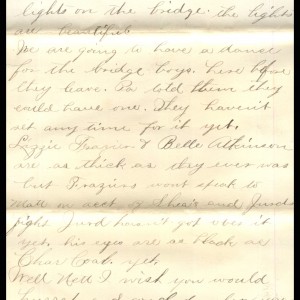 lights on the bridge. the lights
are beautiful
We are going to have a dance
for the bridge boys. here before
they leave. Pa told them they
could have one. They havent
set any time for it yet.
Lizzie Frazier & Belle Atkinson
are as thick as they ever was
but Fraziers wont speak to
Matt on acct of theair and Jurds
fight Jurd hasn't got over it
yet, his eyes are as black as
Char Coal yet.
Well Nett I wish you would